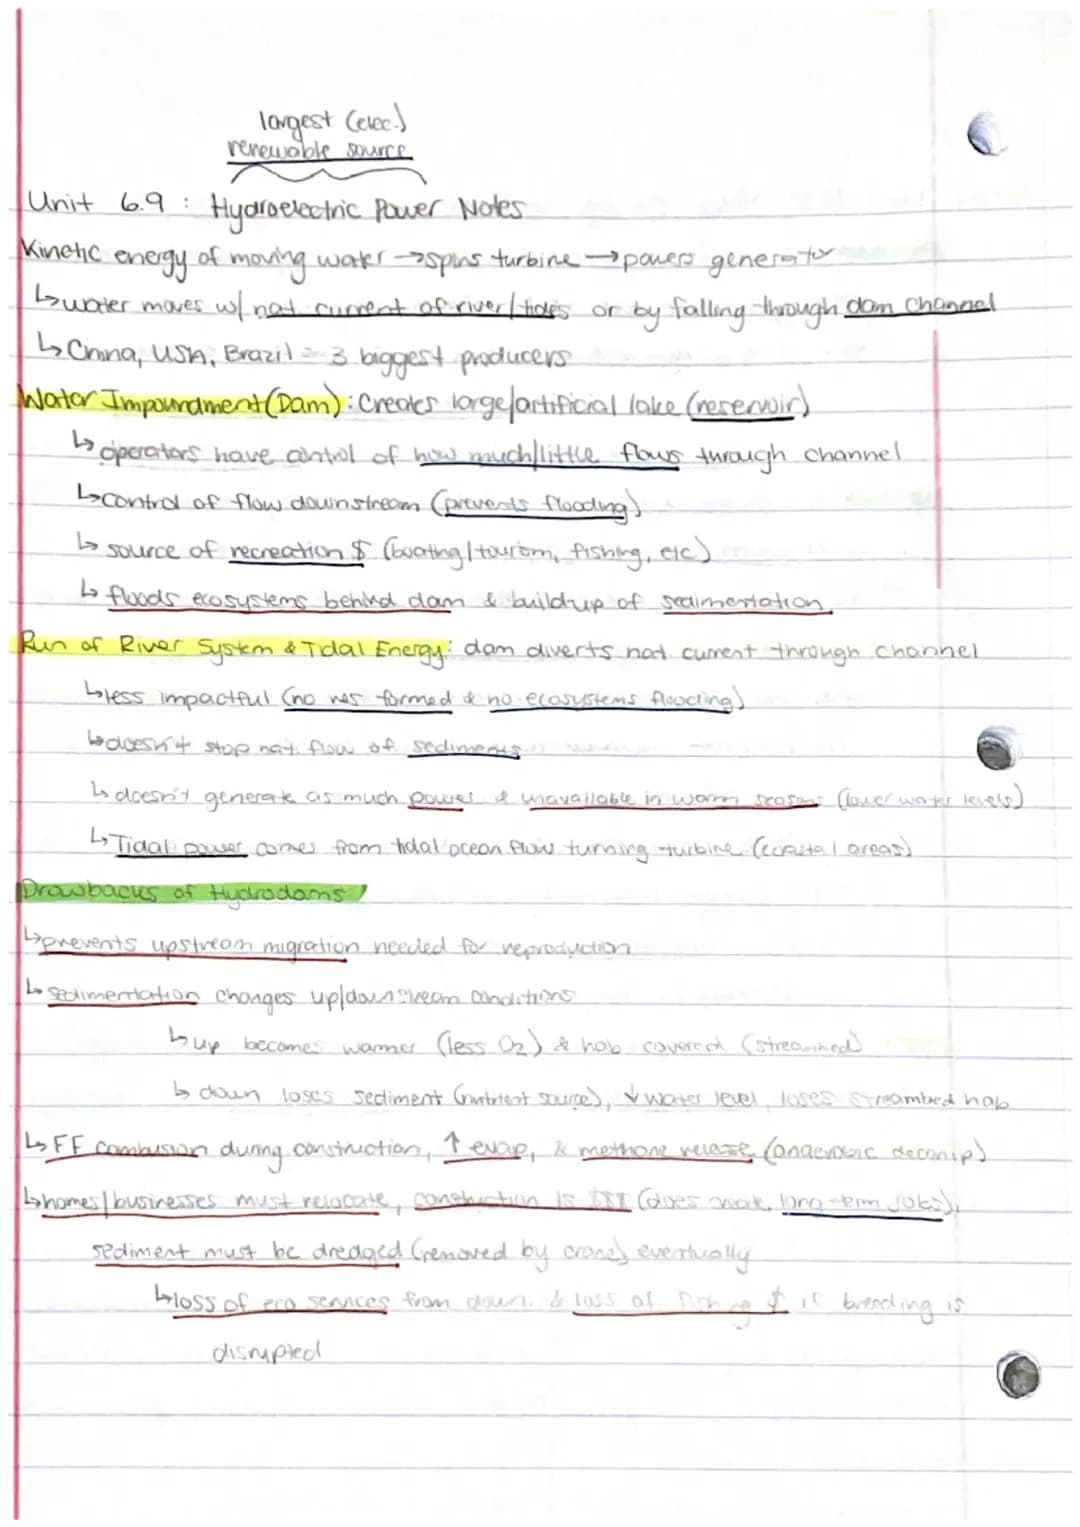 largest (elec.)
renewable source
Unit 6.9 : Hydroelectric Power Notes
Kinetic energy of moving water → spins turbine → powers generator
↳ water moves w/ nat. current of river/tides or by falling through dam channel
↳ China, USA, Brazil = 3 biggest producers
Water Impoundment (Dam): Creates large/artificial lake (reservoir)
↳ operators have control of how much/little flows through channel
↳ control of flow downstream (prevents flooding)
↳ source of recreation $ (boating/tourism, fishing, etc)
↳ floods ecosystems behind dam & buildup of sedimentation
Run of River System & Tidal Energy: dam diverts nat current through channel
↳ less impactful (no res formed & no ecosystems flooding)
↳ doesn't stop nat. flow of sediments
↳ doesn't generate as much power & unavailable in warm seasons (lower water levels)
↳ Tidal power comes from tidal ocean flow turning turbine (coastal areas)
Drawbacks of Hydrodams
↳ prevents upstream migration needed for reproduction
↳ sedimentation changes up/downstream conditions
↳ up becomes warmer (less O2) & hab covered
↳ down loses sediment (nutrient source), ↓ water level, loses streambed hab
↳ FF combusion during construction, ↑ evap, & methane release (anaerobic decomp)
↳ homes/businesses must relocate, construction is $$$ (does create long-term jobs),
sediment must be dredged (removed by crane) eventually
↳ loss of eco services from down. & loss of fishing $ if breeding is
disrupted